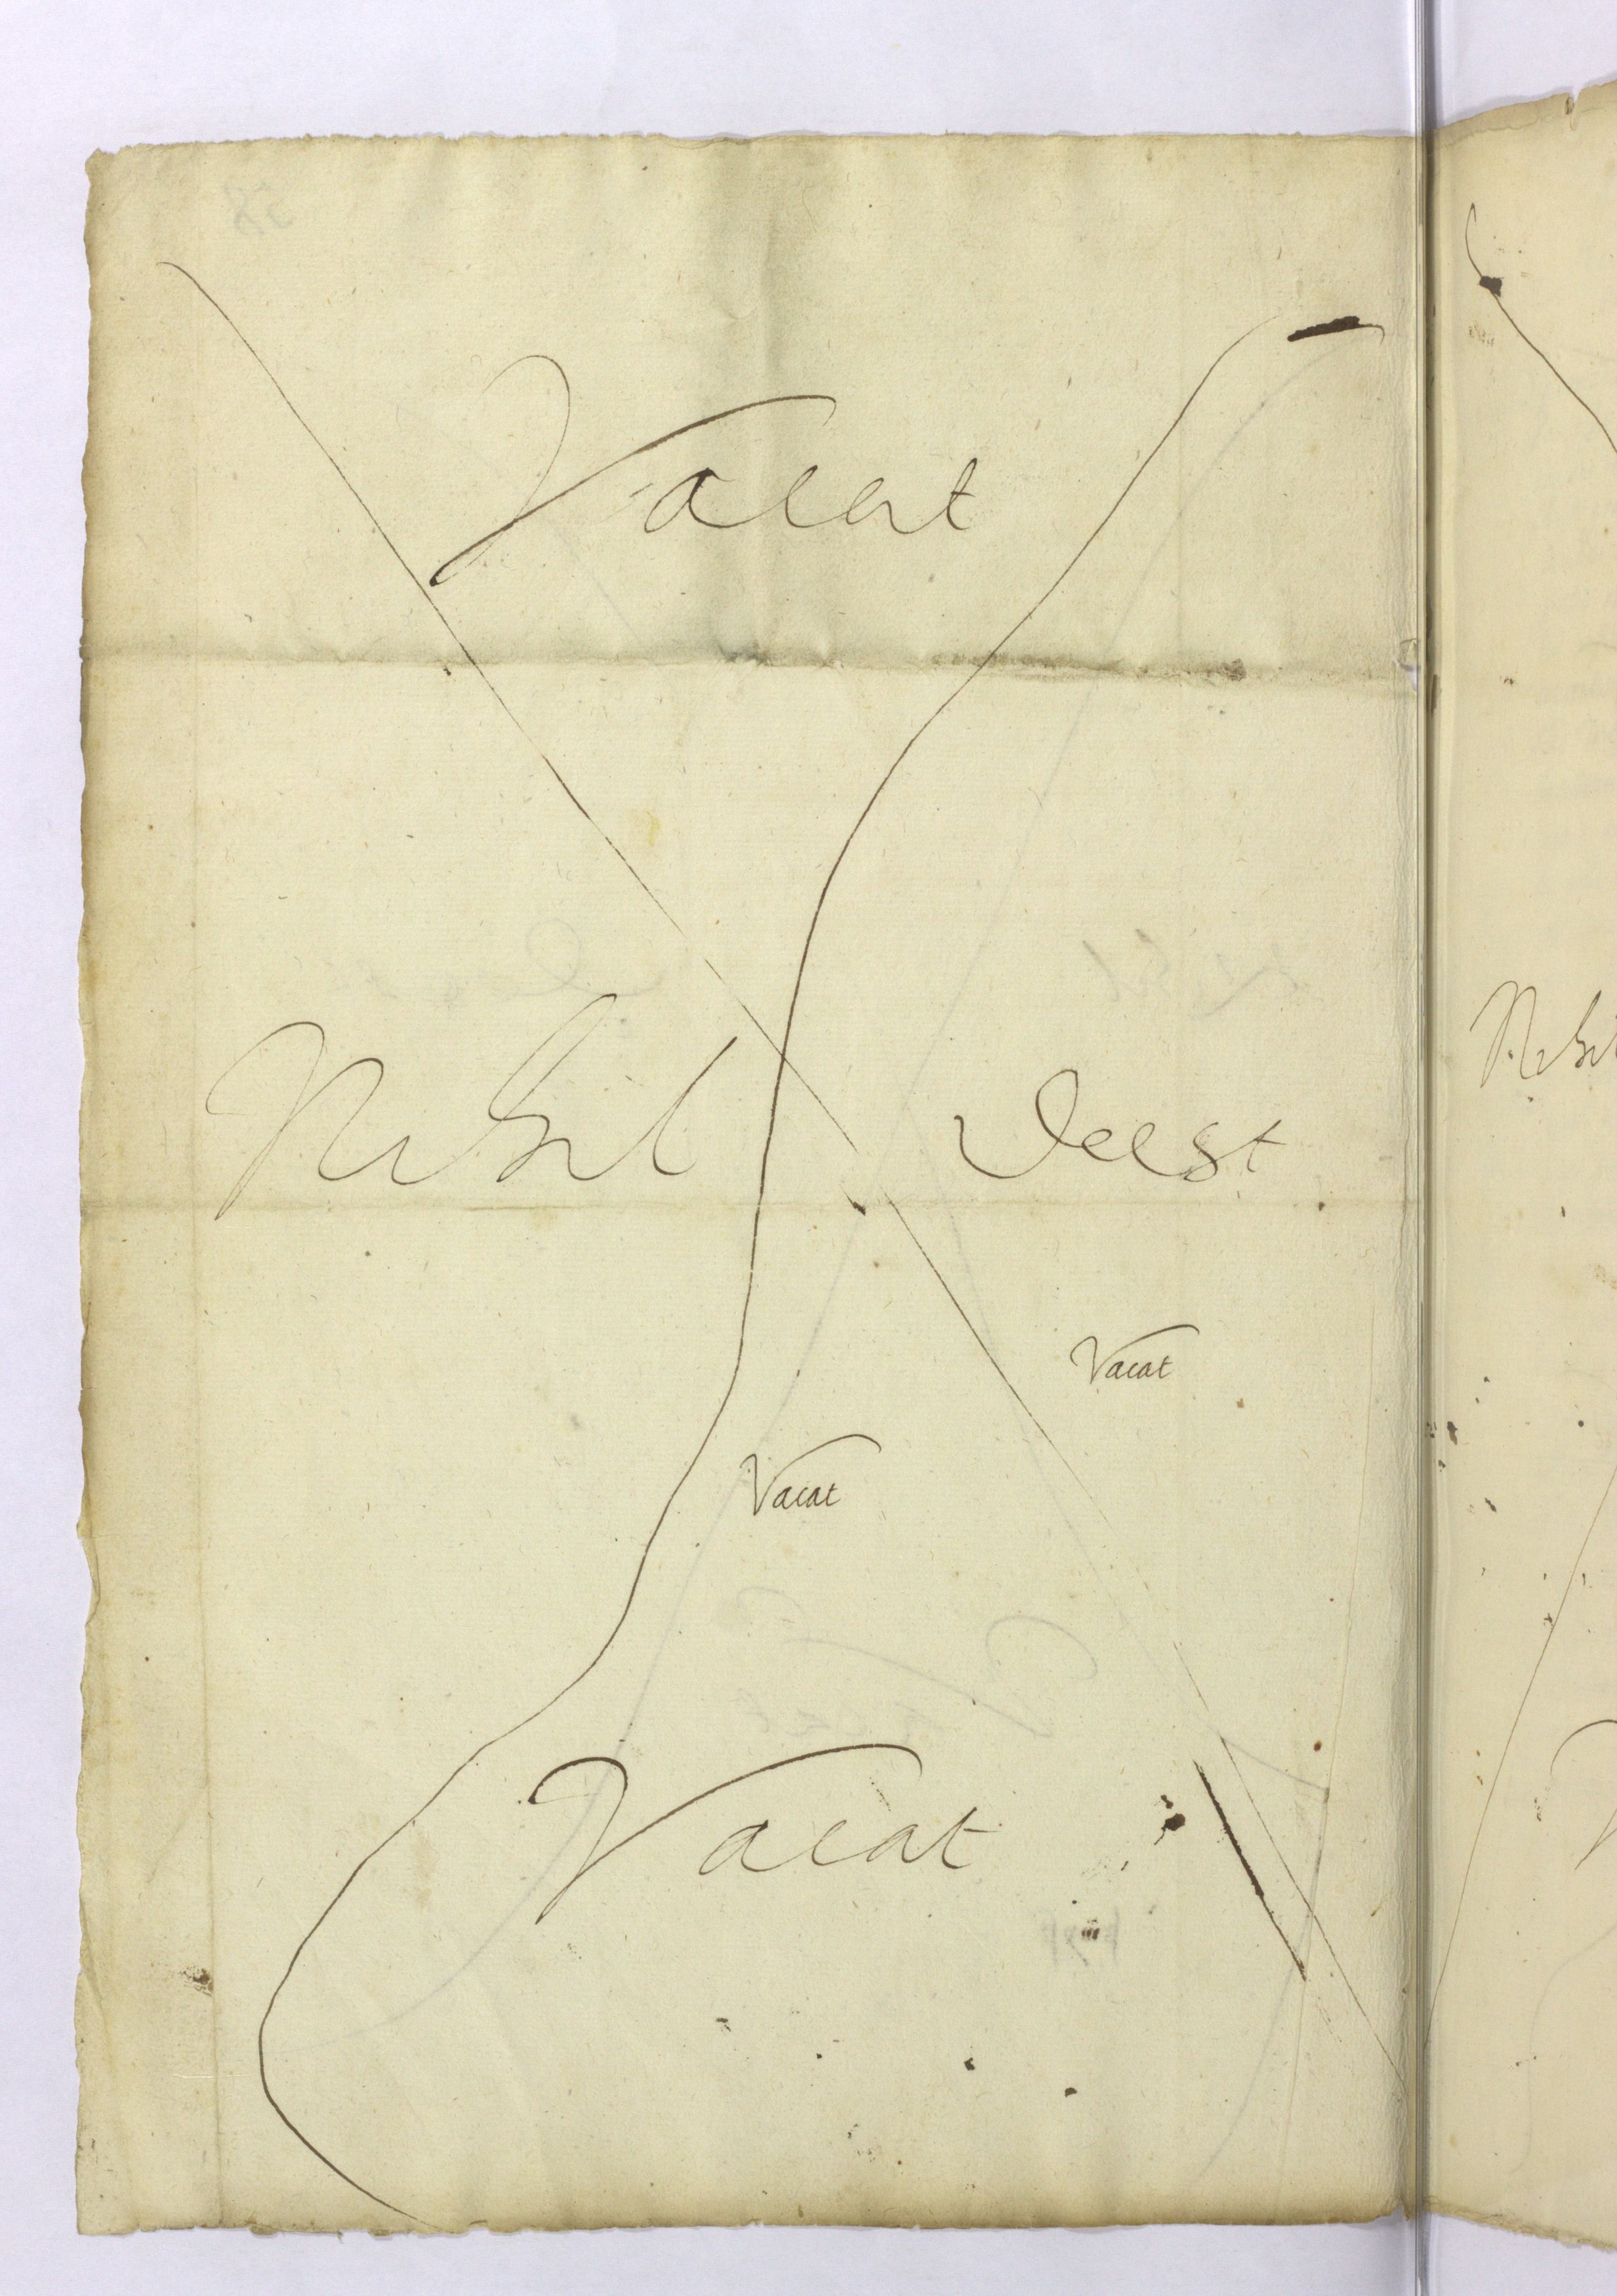 Vacat
Nihil deest
Vacat
Vacat
Vacat
Nihil